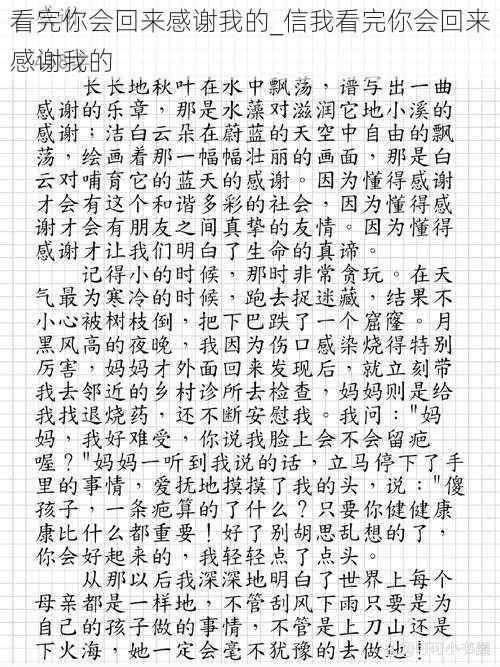 看完你会回来感谢我的_信我看完你会回来
感谢我的
长长地秋叶在水中飘荡，谱写出一曲
感谢的乐章，那是水藻对滋润它地小溪的
感谢；洁白云朵在蔚蓝的天空中自由的飘
荡，绘画着那一幅幅壮丽的画面，那是白
云对哺育它的蓝天的感谢。因为懂得感谢
才会有这个和谐多彩的社会，因为懂得感
谢才会有朋友之间真挚的友情。因为懂得
感谢才让我们明白了生命的真谛。
记得小的时候，那时非常贪玩。在天
气最为寒冷的时候，跑去捉迷藏，结果不
小心被树枝倒，把下巴跌了一个窟窿。月
黑风高的夜晚，我因为伤口感染烧得特别
厉害，妈妈才外面回来发现后，就立刻带
我去邻近的乡村诊所去检查，妈妈则是给
我找退烧药，还不断安慰我。我问："妈
妈，我好难受，你说我脸上会不会留疤
喔？"妈妈一听到我说的话，立马停下了手
里的事情，爱抚地摸摸了我的头，说："傻
孩子，一条疤算的了什么？只要你健健康
康比什么都重要！好了别胡思乱想的了，
你会好起来的，我轻轻点了点头。
从那以后我深深地明白了世界上每个
母亲都是一样地，不管刮风下雨只要是为
自己的孩子做的事情，不管是上刀山还是
下火海，她一定会毫不犹豫的去做的去